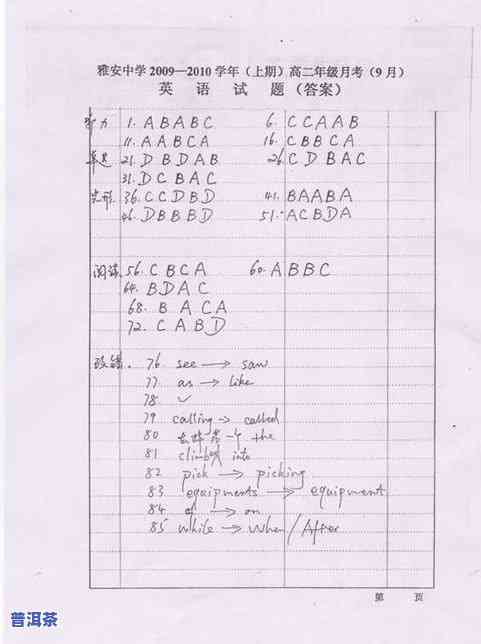 雅安中学2009—2010学年（上期）高二年级月考（9月）
英 语 试 题（答案）
听力 1. A B A B C 6. C C A A B
11. A A B C A 16. C B B C A
单选 21. D B D A B 26. C D B A C
31. D C B A C
完形. 36. C C D B D 41. B A A B A
46. D B B B D 51. A C B D A
阅读. 56. C B C A 60. A B B C
64. B D A C
68. B A C A
72. C A B D
改错. 76. see → saw
77. as → like
78. ✓
79 calling → called
80 去掉第一个 the
81 climbed into
82 pick → picking
83 equipments → equipment
84 of → on
85 while → when/After
第 页
普洱茶